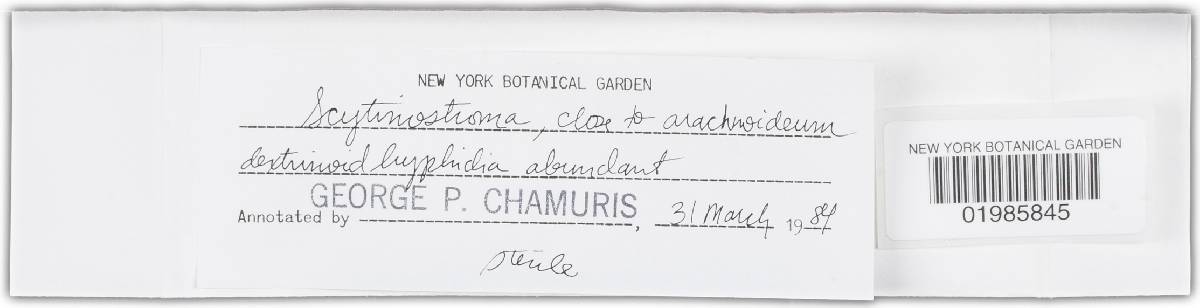 NEW YORK BOTANICAL GARDEN
Scytinostroma, close to arachnoideum
dextrinoid hyphidia abundant
GEORGE P. CHAMURIS
Annotated by , 31 March 1984
sterile
NEW YORK BOTANICAL GARDEN
01985845